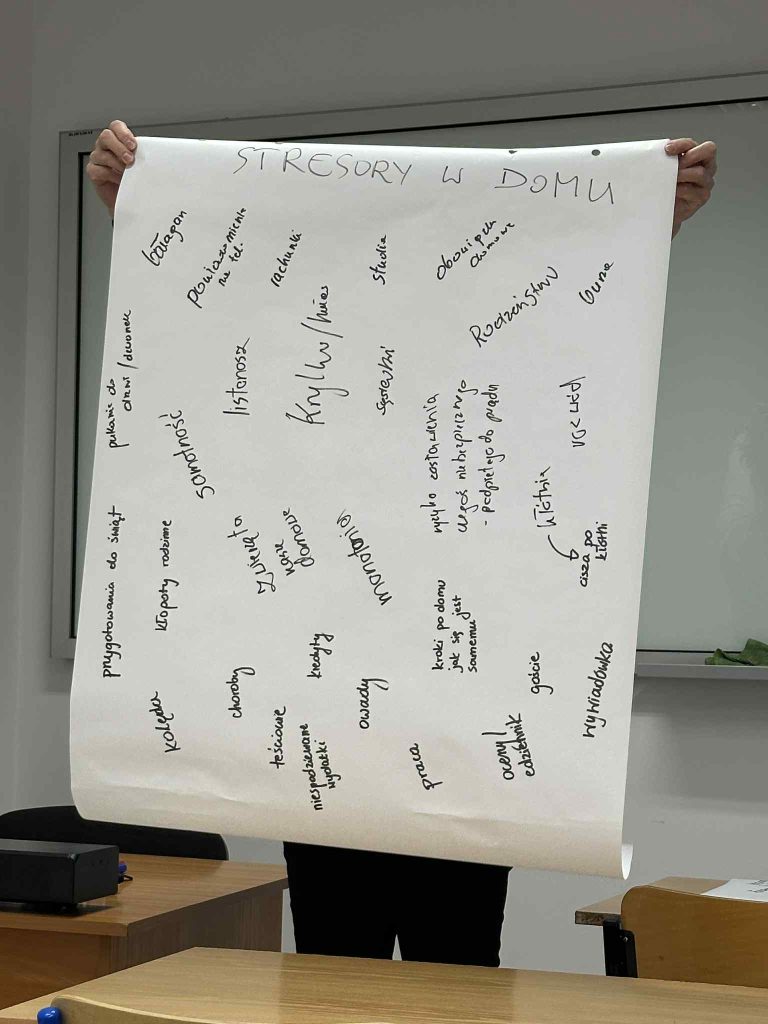 STRESORY W DOMU
bałagan
powiadomienia
na tel.
rachunki
studia
obowiązki
domowe
Rodzeństwo
burza
pukanie do
drzwi/dzwonek
samotność
listonosz
sąsiedzi
ryzyko zostawienia
czegoś niebezpiecznego
- podpiętego do prądu
kłótnia
cisza po
kłótni
przygotowania do świąt
kłopoty rodzinne
zwierzęta
nasze
domowe
monotonia
kroki po domu
jak się jest
samemu
kolęda
choroby
kredyty
teściowe
niespodziewane
wydatki
owady
praca
oceny/
edziennik
goście
wywiadówka